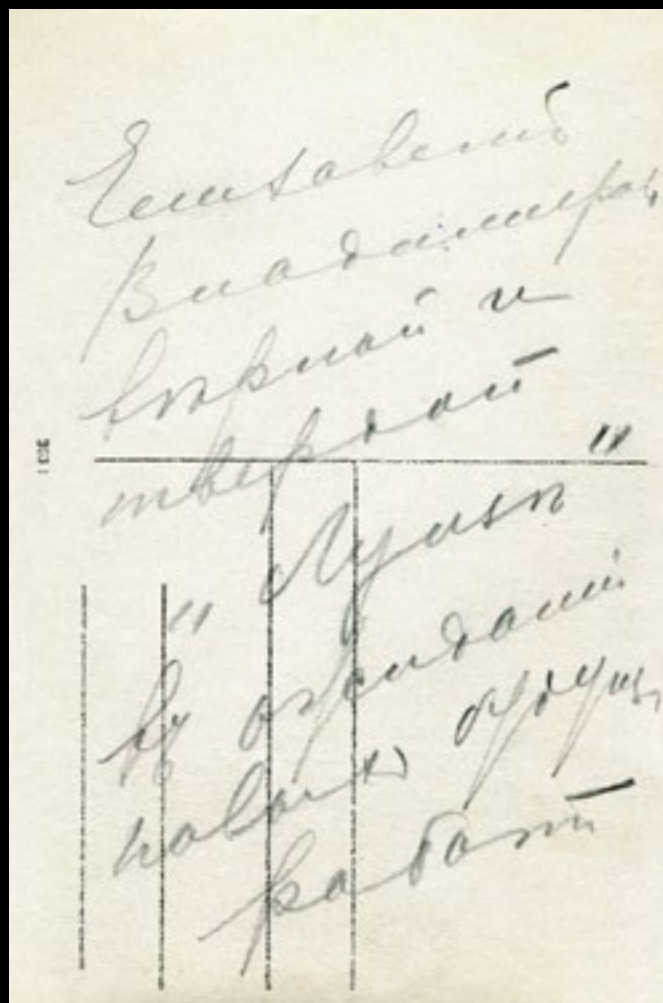 Елизаветѣ
Владимиров
вѣрной и
твердой
"Луизѣ"
въ ожиданіи
новыхъ будущ
работъ